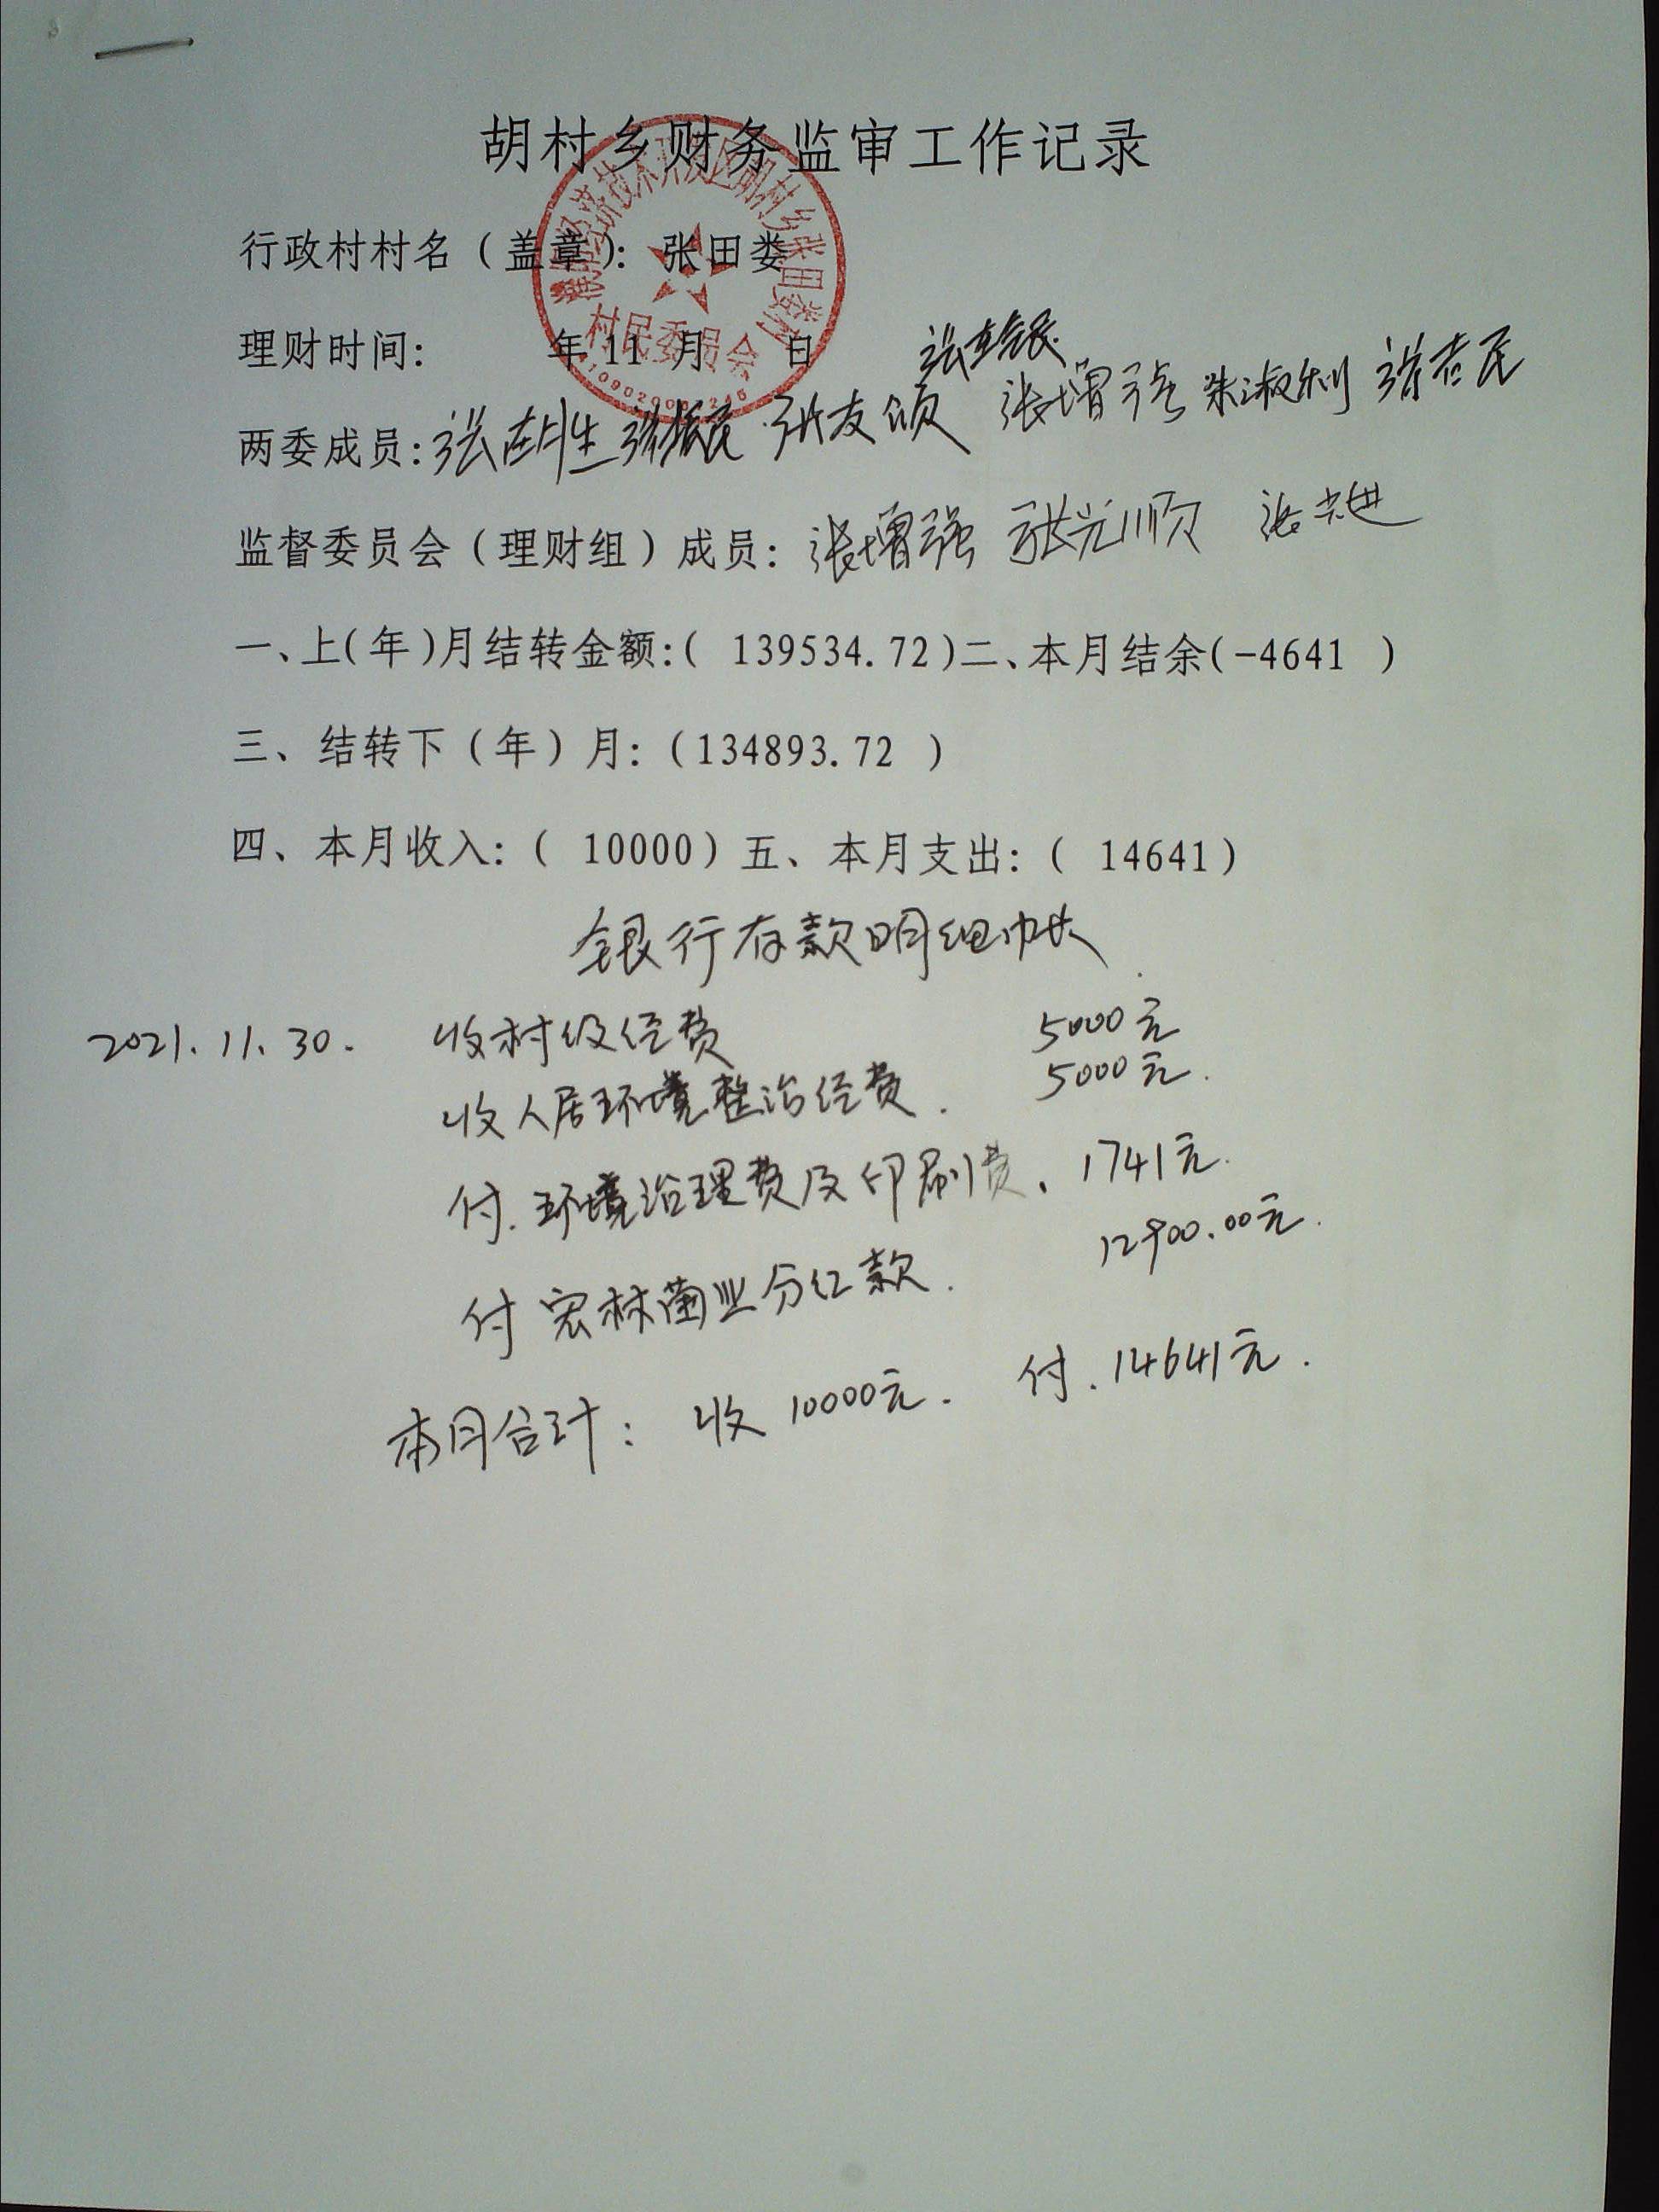 胡村乡财务监审工作记录
行政村村名（盖章）：张田娄
理财时间： 年 11 月 日
两委成员：张 张友 张增强 朱淑利
监督委员会（理财组）成员：张增强 张光顺
一、上(年)月结转金额：( 139534.72)二、本月结余(-4641 )
三、结转下（年）月：（134893.72 ）
四、本月收入：（ 10000）五、本月支出：（ 14641）
银行存款明细帐
2021.11.30. 收村级经费 5000元
收人居环境整治经费. 5000元.
付.环境治理费及印刷费、1741元.
付宏林菌业分红款. 12900.00元.
本月合计： 收10000元. 付.14641元.
胡村乡张田娄村
村民委员会